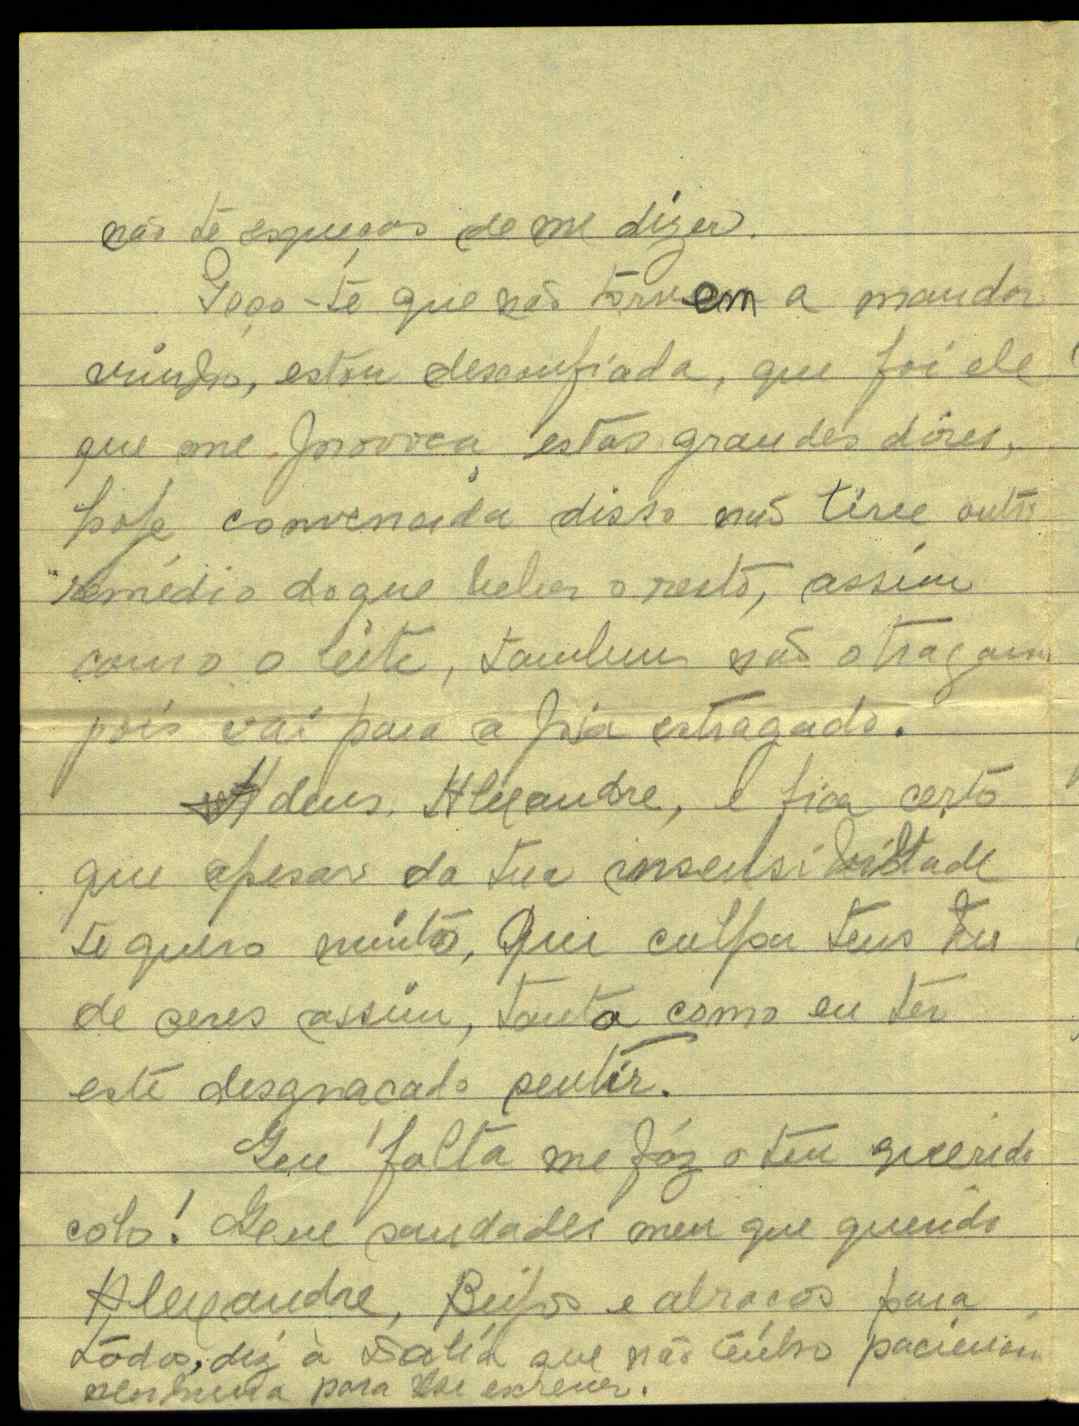 não te esqueças de me dizer.
Peço-te que não tornem a mandar
vinho, estou desconfiada, que foi ele
que me provoca estas grandes dôres,
hoje convencida disso não tive outro
remédio do que beber o resto, assim
como o leite, tambem não o tragam
pois vai para a pia estragado.
Adeus, Alexandre, e fica certo
que apesar da tua insensibilidade
te quero muito, Que culpa tens tu
de seres assim, tanta como eu ter
este desgraçado sentir.
Que falta me fáz o teu querido
colo! Que saudades meu que querido
Alexandre, Beijos e abraços para
todos, diz à que não tenho paciencia
nenhuma para lhe escrever.